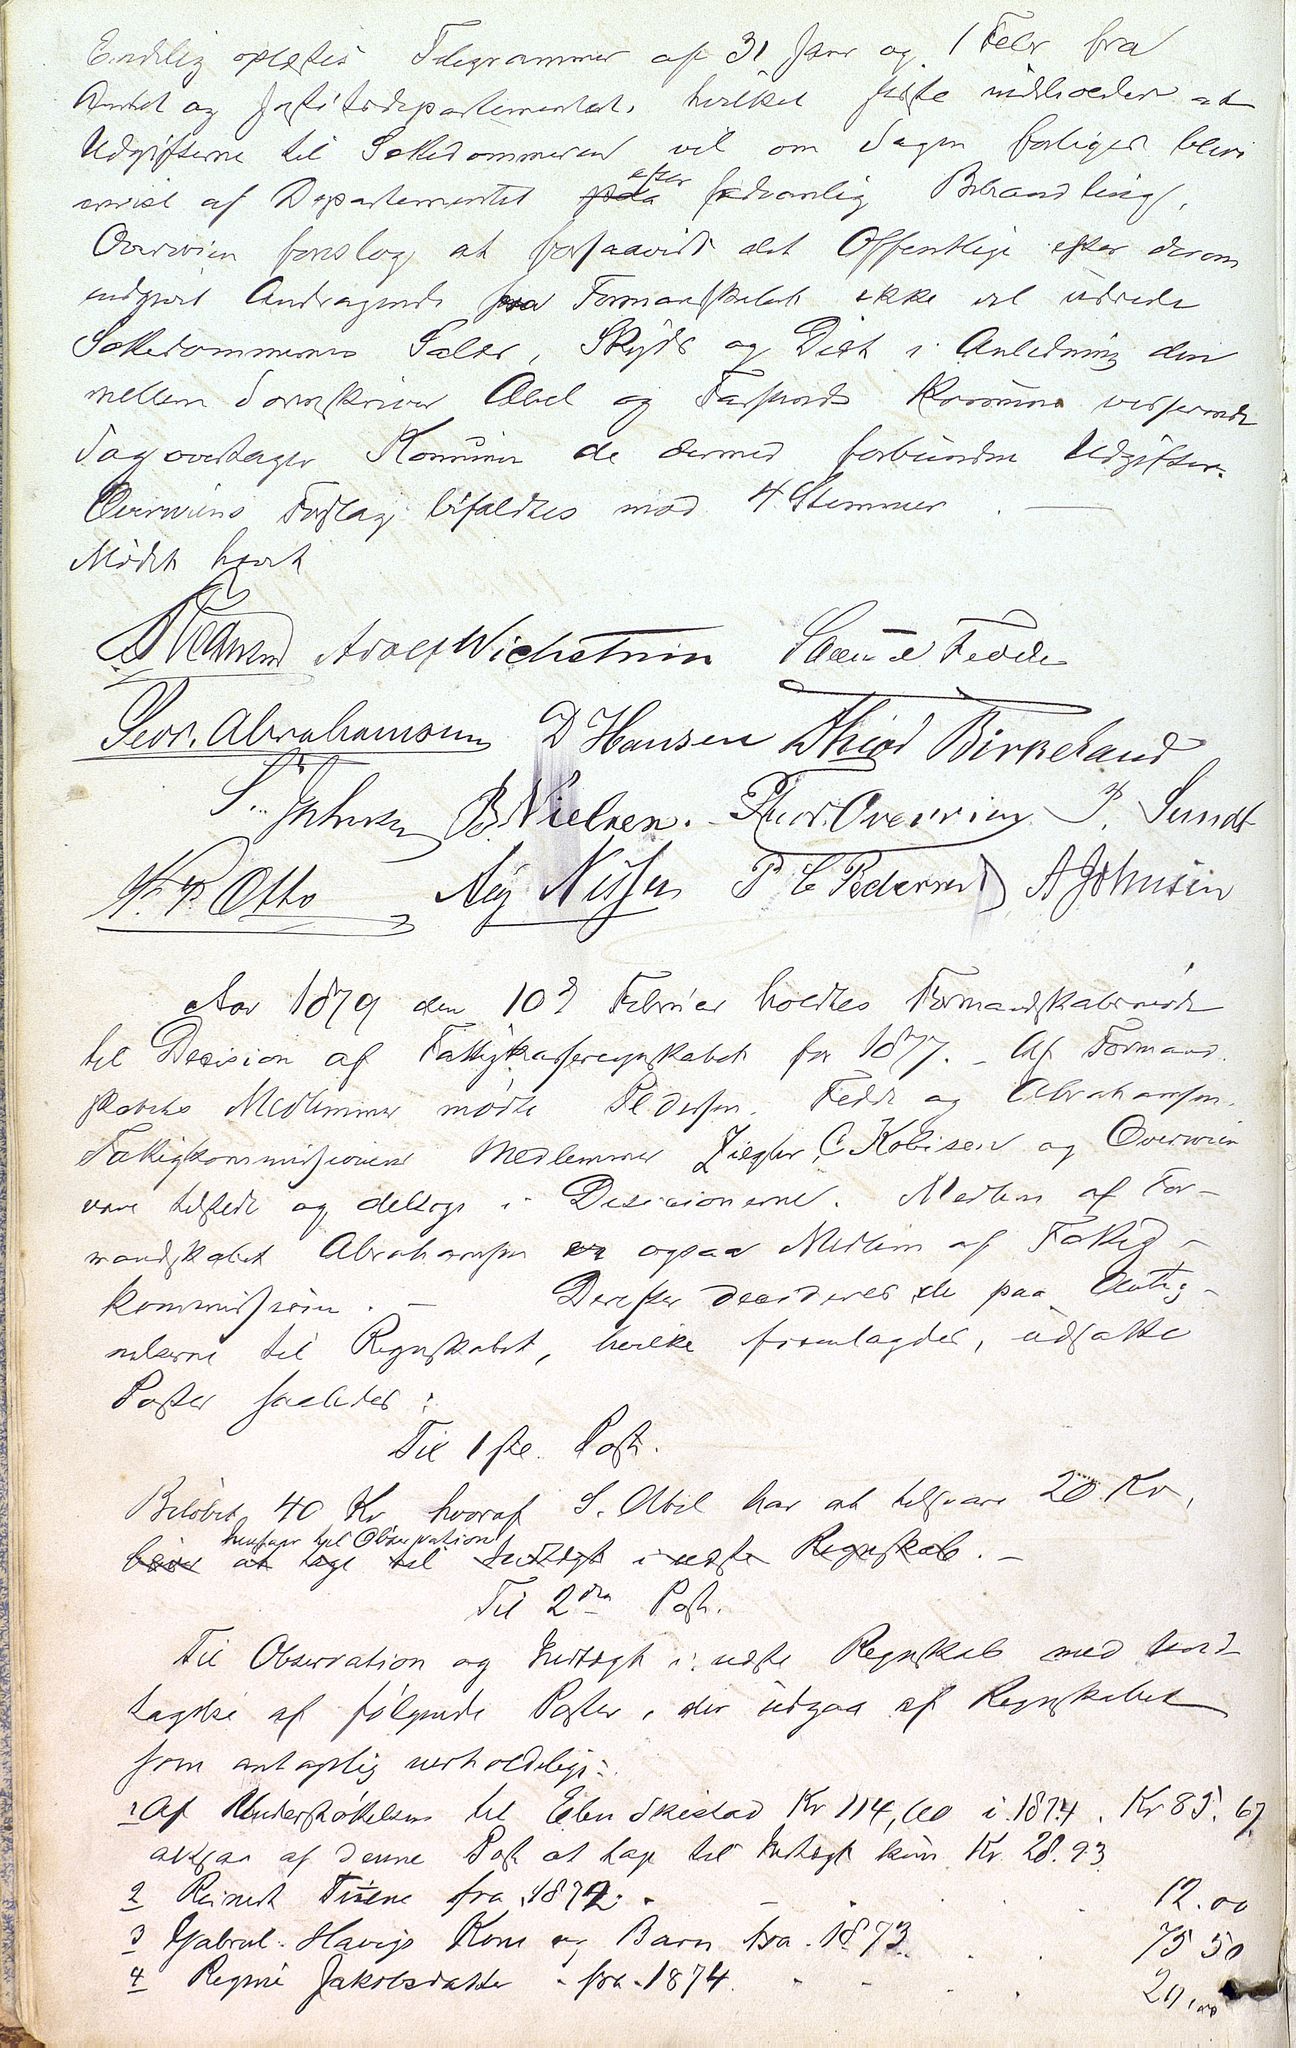 Endelig oplæstes Telegrammer af 31 Janr og 1 Febr fra
Amtet og Justitsdepartementet, hvilket sidste indholder at
Udgifterne til Settedommeren vil om Sagen forliges blive
anvist af Departementet efter sædvanlig Behandling.
Overwien foreslog at forsaavidt det Offentlige efter derom
indgivet Andragende fra Formandskabet ikke vil udrede
Settedommerens Salær, Skyds og Diæt i Anledning den
mellem Sorenskriver Abel og Farsunds Kommune verserende
Sag overtager Kommunen de dermed forbundne Udgifter.
Overwiens Forslag bifaldtes mod 4 Stemmer. —
Mødet hævet
Adolf Wichstrøm Samuel Fedde
Geor. Abrahamsen D Hansen Thiod Birkeland
S. Johnsen B. Nielsen. Theod. Overwien P. Sundt
P. Otto Aug Nissen P C Pedersen A Johnsen
Aar 1879 den 10d Februar holdtes Formandskabsmøde
til Decision af Fattigkasseregnskabet for 1877. – Af Formand
skabets Medlemmer mødte Pedersen, Fedde og Abrahamsen.
Fattigkommissionens Medlemmer Ziegler, C Kobisen og Overwien
vare tilstede og deltoge i Desicionerne. Medlem af For-
mandskabet Abrahamsen er ogsaa Medlem af Fattig-
kommissionen. – Derefter decideredes de paa Anteg-
nelserne til Regnskabet, hvilke fremlagdes, udsatte
Poster saaledes:
Til 1ste Post.
Beløbet 40 Kr. hvoraf S. Abel har at tilsvare 20 Kr,
henstaar til Observation
bliver at tage til Indtægt i næste Regnskab. –
Til 2den Post.
Til Observation og Indtægt i næste Regnskab med Und-
tagelse af følgende Poster, der udgaa af Regnskabet
som antagelig uerholdelige:
1 Af Understøttelsen til Elen Skistad Kr 114,60 i 1874. Kr 85.67
altsaa af denne Post at tage til Indtægt kun Kr. 28.93
2 Reinert Tiuene fra 1872. 12.00
3 Gabriel Havigs Kone og Barn fra 1873. 75 50
4 Regine Jakobsdatter fra 1874. 20,00